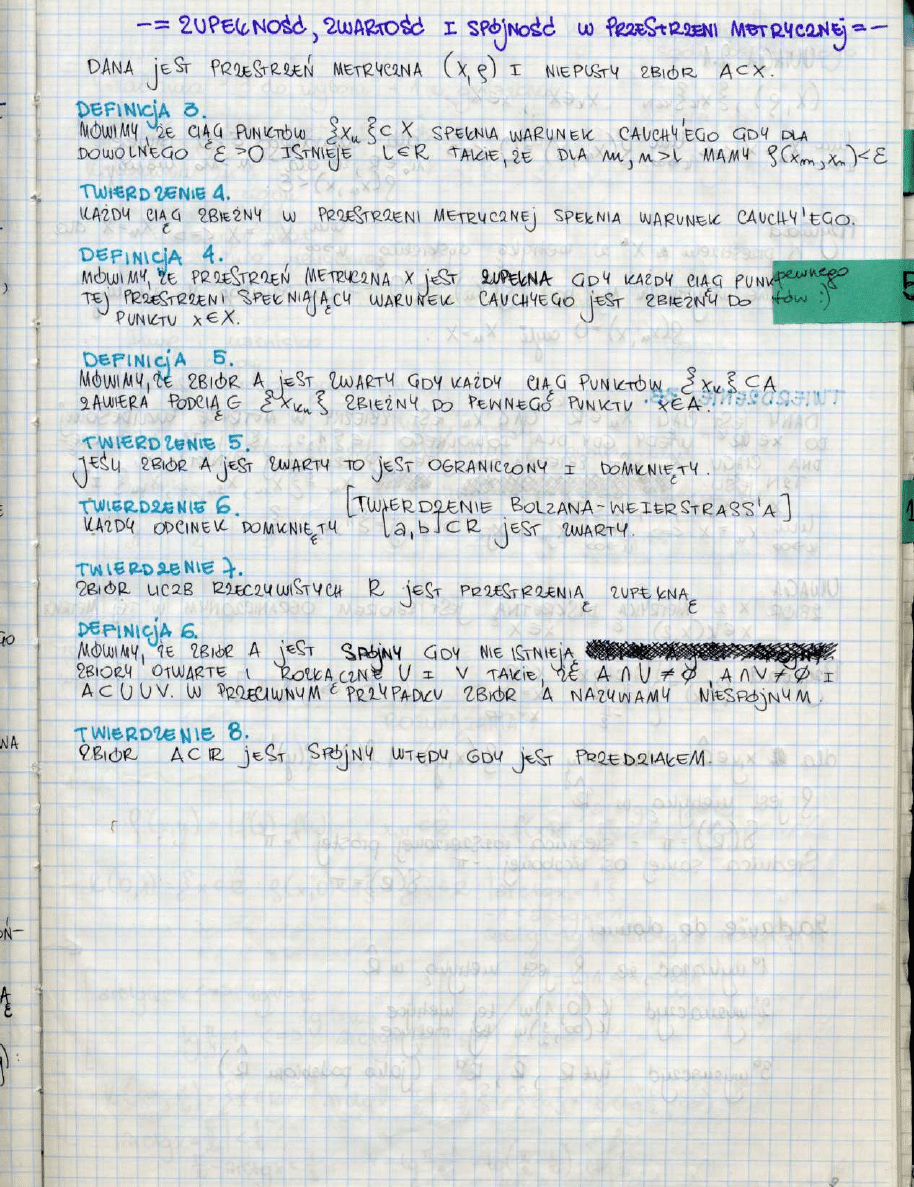 -= ZUPEŁNOŚĆ, ZWARTOŚĆ I SPÓJNOŚĆ W PRZESTRZENI METRYCZNEJ =-
DANA JEST PRZESTRZEŃ METRYCZNA (X, ρ) I NIEPUSTY ZBIÓR A⊂X.
DEFINICJA 3.
MÓWIMY, ŻE CIĄG PUNKTÓW {xₙ}⊂X SPEŁNIA WARUNEK CAUCHY'EGO GDY DLA
DOWOLNEGO ε>0 ISTNIEJE L∈R TAKIE, ŻE DLA m,n>L MAMY ρ(xₘ,xₙ)<ε
TWIERDZENIE 4.
KAŻDY CIĄG ZBIEŻNY W PRZESTRZENI METRYCZNEJ SPEŁNIA WARUNEK CAUCHY'EGO.
DEFINICJA 4.
MÓWIMY, ŻE PRZESTRZEŃ METRYCZNA X JEST ZUPEŁNA GDY KAŻDY CIĄG PUNKtów :)
TEJ PRZESTRZENI SPEŁNIAJĄCY WARUNEK CAUCHYEGO JEST ZBIEŻNY DO pewnego
PUNKTU x∈X.
DEFINICJA 5.
MÓWIMY, ŻE ZBIÓR A JEST ZWARTY GDY KAŻDY CIĄG PUNKTÓW {xₙ}⊂A
ZAWIERA PODCIĄG {xₖₙ} ZBIEŻNY DO PEWNEGO PUNKTU x∈A.
TWIERDZENIE 5.
JEŚLI ZBIÓR A JEST ZWARTY TO JEST OGRANICZONY I DOMKNIĘTY.
TWIERDZENIE 6. [TWIERDZENIE BOLZANA-WEIERSTRASS'A]
KAŻDY ODCINEK DOMKNIĘTY [a,b]⊂R JEST ZWARTY.
TWIERDZENIE 7.
ZBIÓR LICZB RZECZYWISTYCH R JEST PRZESTRZENIĄ ZUPEŁNĄ
DEFINICJA 6.
MÓWIMY, ŻE ZBIÓR A JEST SPÓJNY GDY NIE ISTNIEJĄ
ZBIORY OTWARTE I ROZŁĄCZNE U I V TAKIE, ŻE A∩U≠∅, A∩V≠∅ I
A⊂U∪V. W PRZECIWNYM PRZYPADKU ZBIÓR A NAZYWAMY NIESPÓJNYM.
TWIERDZENIE 8.
ZBIÓR A⊂R JEST SPÓJNY WTEDY GDY JEST PRZEDZIAŁEM.